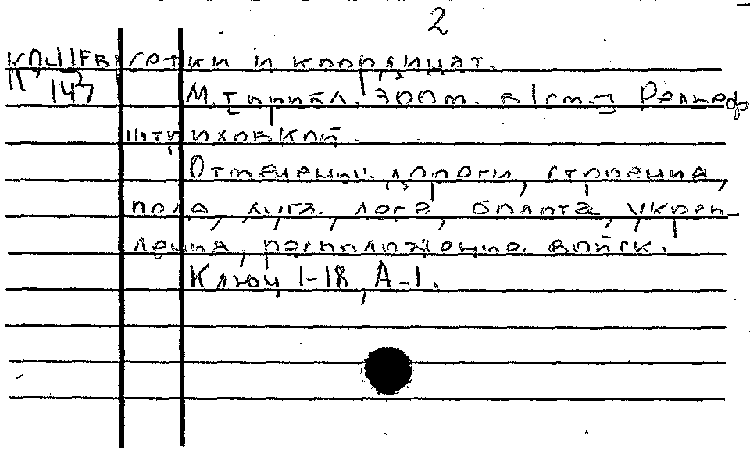 2
сетки и координат.
147 М. [прибл. 300 м. в 1 см.] Рельеф
штриховкой.
Отмечены дороги, строения,
поля, луга, леса, болота, укреп-
ления, расположение войск.
Ключ 1-18, А-1.